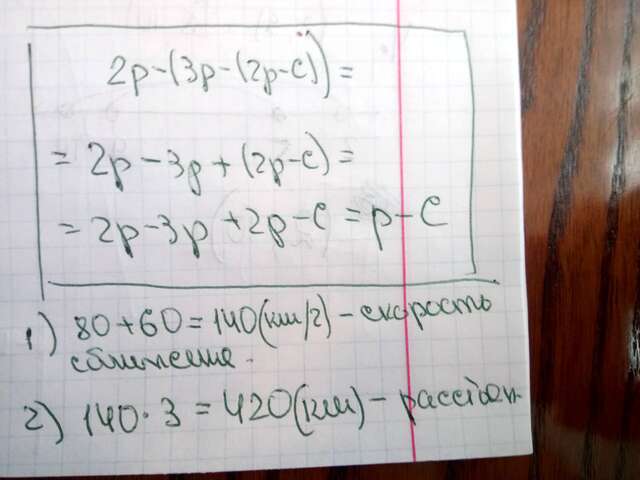 2p-(3p-(2p-c))=
=2p-3p+(2p-c)=
=2p-3p+2p-c=p-c
1) 80+60=140(км/г)-скорость
сближение.
2) 140·3=420(км)-расстоян